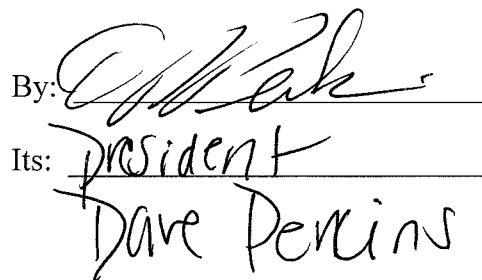 By:
Its: President
Dave Perkins